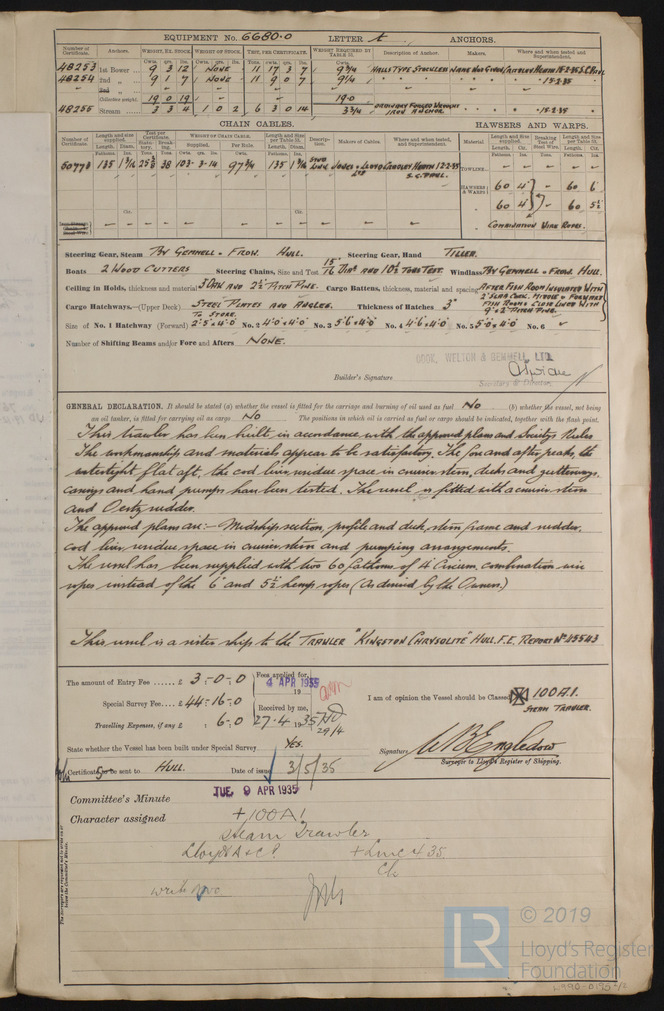 EQUIPMENT No. 6680.0 LETTER t ANCHORS.
Number of Certificate. Anchors. WEIGHT, EX. STOCK. WEIGHT OF STOCK. TEST, PER CERTIFICATE. WEIGHT REQUIRED BY TABLE 53. Description of Anchor. Makers. Where and when tested and Superintendent.
48253 1st Bower 9 3 12 NONE 11 17 3 7 9 3/4 HALLS TYPE STOCKLESS NAME NOT GIVEN
48254 2nd " 9 1 7 NONE 11 9 0 7 9 1/4 " 15-2-35
3rd "
Collective weight. 19 0 19 19.0
48255 Stream 3 3 4 1 0 2 6 3 0 14 3 3/4 ORDINARY FORGED WROUGHT IRON ANCHOR 15-2-35
CHAIN CABLES. HAWSERS AND WARPS.
Number of Certificate. Length and size supplied. Test per Certificate. WEIGHT OF CHAIN CABLE. Length and Size per Table 53. Description. Makers of Cables. Where and when tested, and Superintendent. Material. Length and Size supplied. Breaking Test of Steel Wire. Length and Size per Table 53.
135 103-3-14 97 3/4 135 STUD LINK 12-2-35 TOWLINE
S.C. PAUL.
HAWSERS & WARPS 60 4" 60 6"
60 4" 60 5½
COMBINATION WIRE ROPES.
Steering Gear, Steam BY GEMMELL & FROW. HULL. Steering Gear, Hand TILLER.
Boats 2 WOOD CUTTERS Steering Chains, Size and Test 15/16 DIAR AND 10½ TONS TEST. Windlass BY GEMMELL & FROW. HULL.
Ceiling in Holds, thickness and material AND 2½ PITCH PINE. Cargo Battens, thickness, material and spacing AFTER FISH ROOM INSULATED WITH
2" SLAB CORK. MIDDLE & FORWARD
FISH ROOMS CLOSE LINED WITH
Cargo Hatchways.—(Upper Deck) STEEL PLATES AND ANGLES. Thickness of Hatches 3" 9" x 2" PITCH PINE.
TO STORE.
Size of No. 1 Hatchway (Forward) 2'-5" x 4'-0" No. 2 4'-0" x 4'-0" No. 3 5'-6" x 4'-0" No. 4 4'-6" x 4'-0" No. 5 5'-0" x 4'-0" No. 6
Number of Shifting Beams and/or Fore and Afters NONE.
COOK, WELTON & GEMMELL, LTD.
Builder's Signature
Secretary & Director.
GENERAL DECLARATION. It should be stated (a) whether the vessel is fitted for the carriage and burning of oil used as fuel No (b) whether the vessel, not being
an oil tanker, is fitted for carrying oil as cargo No The positions in which oil is carried as fuel or cargo should be indicated, together with the flash point.
This trawler has been built in accordance with the approved plans and Society's Rules
The workmanship and materials appear to be satisfactory. The fore and after peaks, the
watertight flat aft, the cod liver residue space in cruiser stern, decks and gutterways,
casings and hand pumps have been tested. The vessel is fitted with a cruiser stern
and Oertz rudder.
The approved plans are:— Midship section, profile and deck, stern frame and rudder,
cod liver residue space in cruiser stern and pumping arrangements.
The vessel has been supplied with two 60 fathoms of 4" circum. combination wire
ropes instead of the 6" and 5½ hemp ropes (As desired by the Owners.)
This vessel is a sister ship to the TRAWLER "KINGSTON CHRYSOLITE" HULL. F.E. REPORT No 45543
The amount of Entry Fee ...... £ 3-0-0 Fees applied for, 4 APR 1935
19
Special Survey Fee .... £ 44-16-0 Received by me, I am of opinion the Vessel should be Classed 100A1.
STEAM TRAWLER.
Travelling Expenses, if any £ : 6-0 27-4 1935 29/4
State whether the Vessel has been built under Special Survey Yes.
Signature W B Engledow
Surveyor to Lloyd's Register of Shipping.
Certificate to be sent to HULL. Date of issue 3/5/35
TUE. 9 APR 1935
Committee's Minute
Character assigned +100A1
Steam Trawler
Lloyd's A & C P. + LMC 4.35.
CL
write
© 2019
LR
Lloyd's Register
Foundation